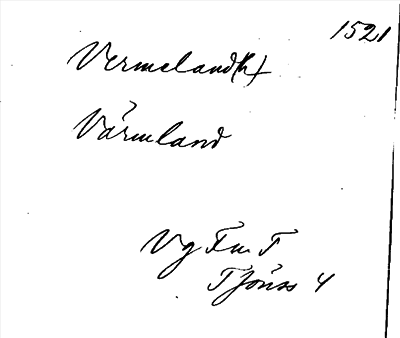 1521
Vermeland(h)
Värmland
Vg FmT
Tjöns 4